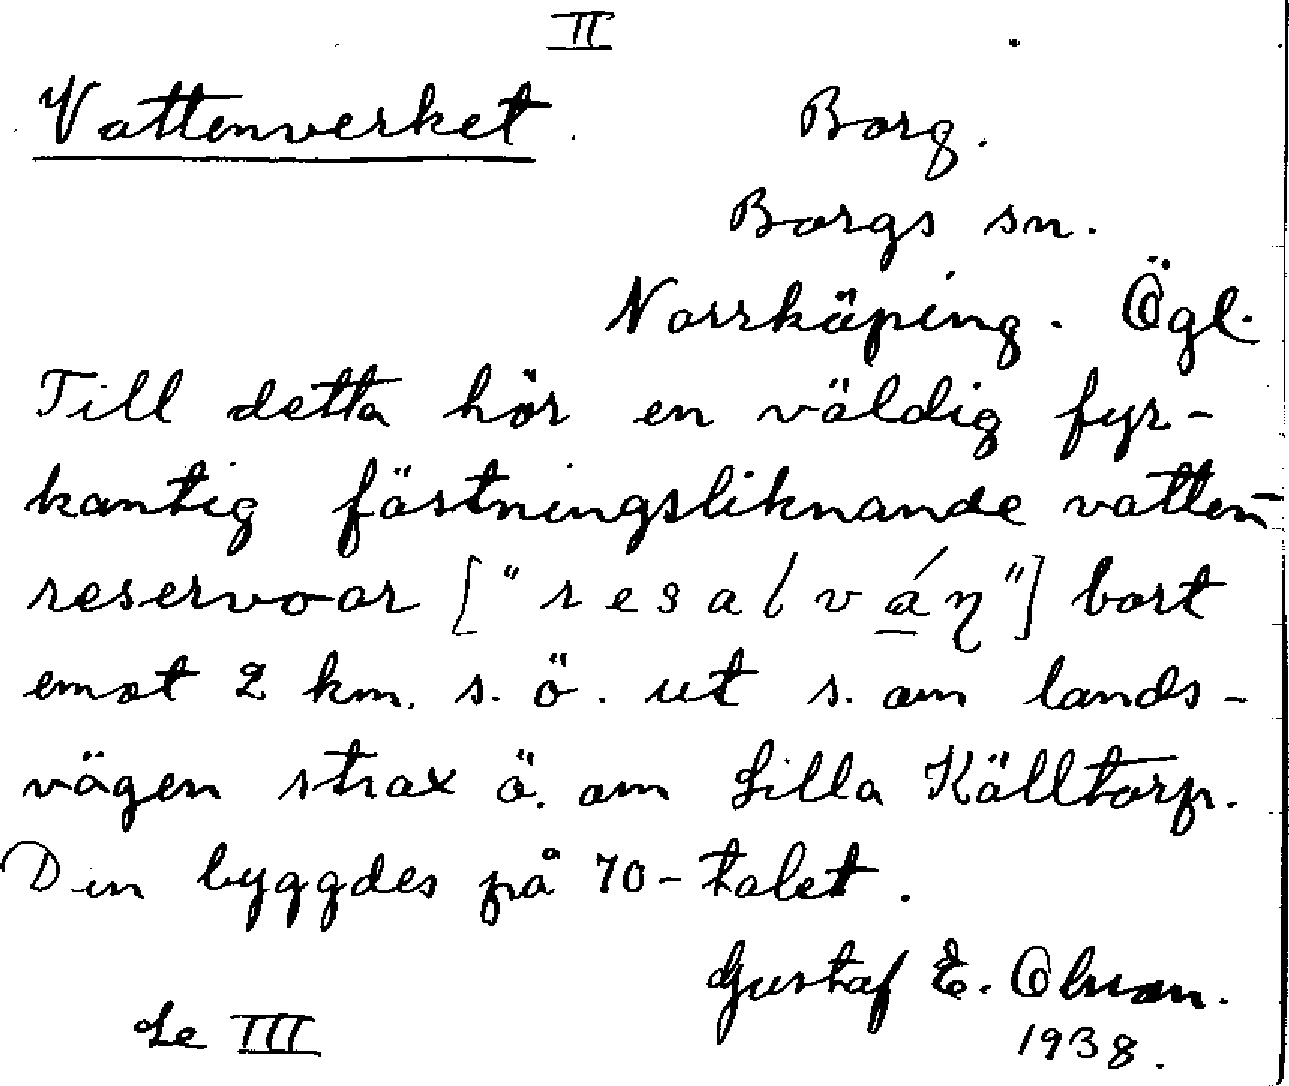 II
Vattenverket. Borg.
Borgs sn.
Norrköping. Ögl.
Till detta hör en väldig fyr-
kantig fästningsliknande vatten-
reservoar ["resalváŋ"] bort
emot 2 km. s. ö. ut s. om lands-
vägen strax ö. om Lilla Källtorp.
Den byggdes på 70-talet.
Gustaf E. Olsson.
Se III 1938.